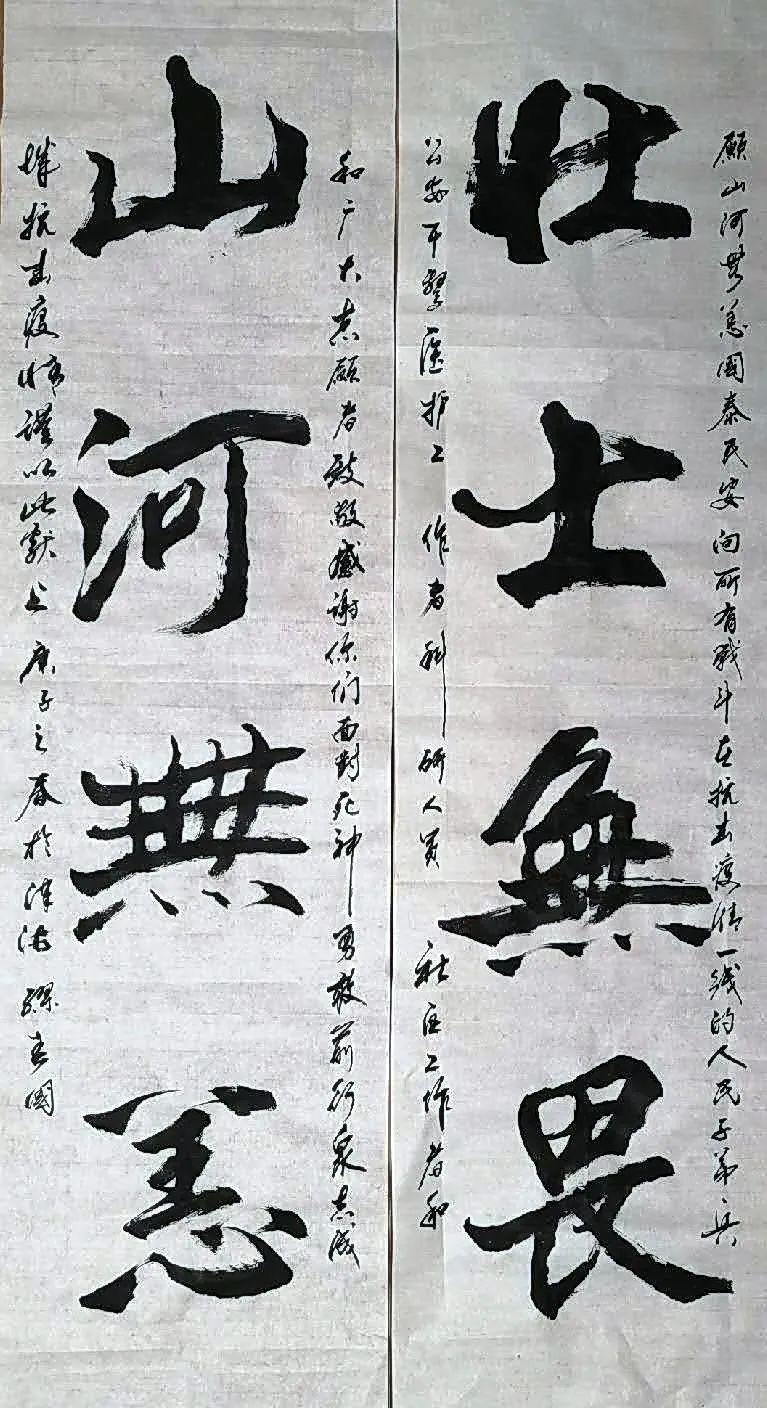 願山河無恙國泰民安向所有戰斗在抗击疫情一线的人民子弟兵
壮士無畏
公安干警医护工作者科研人員社區工作者和
和广大志願者致敬感谢你们面對死神勇敢前行衆志成
山河無恙
城抗击疫情謹以此獻上庚子之春於津沽